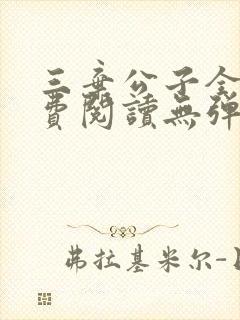 三弃公子全
費閱讀無彈
弗拉基米尔-